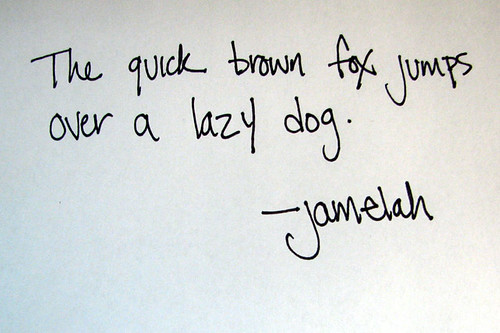 The quick brown fox jumps
over a lazy dog.
—jamelah